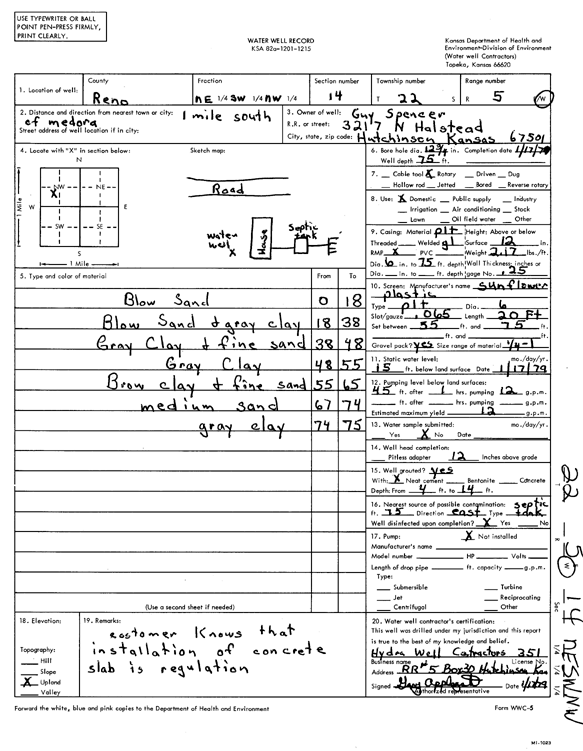 USE TYPEWRITER OR BALL
POINT PEN-PRESS FIRMLY,
PRINT CLEARLY.
WATER WELL RECORD
KSA 82a-1201-1215
Kansas Department of Health and
Environment-Division of Environment
(Water well Contractors)
Topeka, Kansas 66620
1. Location of well:
County
Reno
Fraction
NE 1/4 SW 1/4 NW 1/4
Section number
14
Township number
T 22 S
Range number
R 5 E/W
2. Distance and direction from nearest town or city: 1 mile south
of medora
Street address of well location if in city:
3. Owner of well: Guy Spencer
R.R. or street: 3217 N Halstead
City, state, zip code: Hutchinson Kansas 67501
4. Locate with "X" in section below:
N
NW NE
W E
SW SE
S
1 Mile
1 Mile
X
Sketch map:
Road
water
well
x
House
Septic
tank
5. Type and color of material From To
Blow Sand 0 18
Blow Sand + gray clay 18 38
Gray Clay + fine sand 38 48
Gray Clay 48 55
Brow clay + fine sand 55 65
medium sand 67 74
gray clay 74 75
(Use a second sheet if needed)
6. Bore hole dia. in. Completion date
Well depth 75 ft.
7. Cable tool X Rotary Driven Dug
Hollow rod Jetted Bored Reverse rotary
8. Use: X Domestic Public supply Industry
Irrigation Air conditioning Stock
Lawn Oil field water Other
9. Casing: Material plt Height: Above or below
Threaded Welded gl Surface 12 in.
RMP X PVC Weight 2.17 lbs./ft.
Dia. 6 in. to 75 ft. depth Wall Thickness: inches or
Dia. in. to ft. depth gage No. .25
10. Screen: Manufacturer's name sunflower
plastic
Type plt Dia. 6
Slot/gauze .065 Length 20 Ft
Set between 55 ft. and 75 ft.
ft. and ft.
Gravel pack? yes Size range of material 1/4-1
11. Static water level: mo./day/yr.
15 ft. below land surface Date 1/17/79
12. Pumping level below land surfaces:
45 ft. after 1 hrs. pumping 12 g.p.m.
ft. after hrs. pumping g.p.m.
Estimated maximum yield 12 g.p.m.
13. Water sample submitted: mo./day/yr.
Yes X No Date
14. Well head completion:
Pitless adapter 12 Inches above grade
15. Well grouted? yes
With: X Neat cement Bentonite Concrete
Depth: From 4 ft. to 14 ft.
16. Nearest source of possible contamination: septic
ft. 75 Direction east Type tank
Well disinfected upon completion? X Yes No
17. Pump: X Not installed
Manufacturer's name
Model number HP Volts
Length of drop pipe ft. capacity g.p.m.
Type:
Submersible Turbine
Jet Reciprocating
Centrifugal Other
18. Elevation:
Topography:
Hill
Slope
X Upland
Valley
19. Remarks:
costomer knows that
installation of concrete
slab is regulation
20. Water well contractor's certification:
This well was drilled under my jurisdiction and this report
is true to the best of my knowledge and belief.
Hydra Well Catractors 351
Business name License No.
Address RR#5 Box30 Hutchinson Kan
Signed Date
Authorized representative
Forward the white, blue and pink copies to the Department of Health and Environment
Form WWC-5
MI-1023
22 - 5W 14 NESWNW
Sec 1/4 1/4 1/4